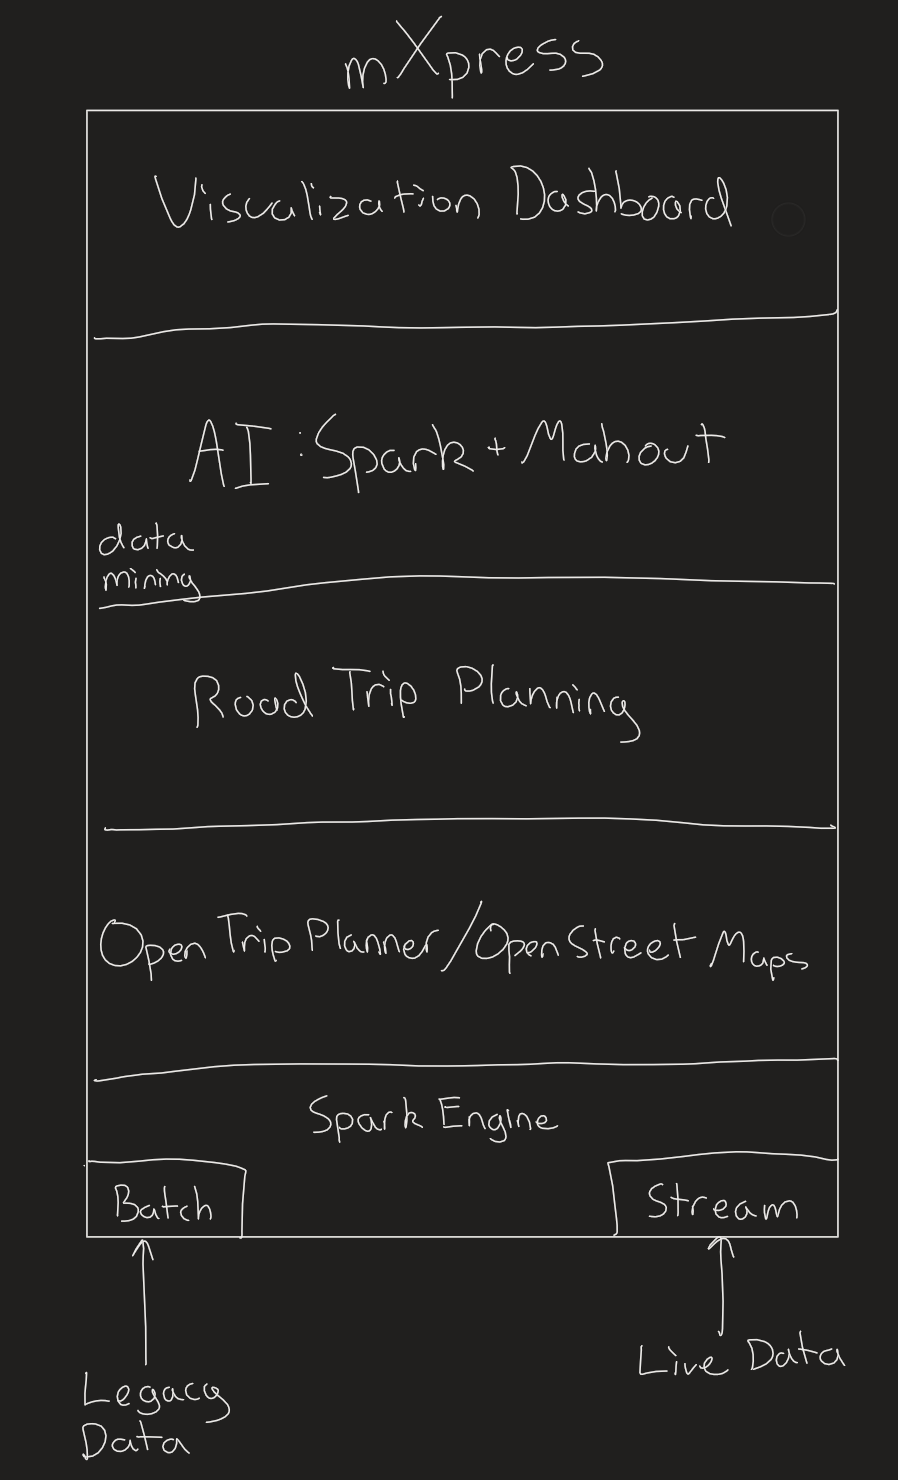 mXpress
Visualization Dashboard
AI : Spark + Mahout
data
mining
Road Trip Planning
Open Trip Planner/OpenStreet Maps
Spark Engine
Batch
Stream
Live Data
Legacy
Data